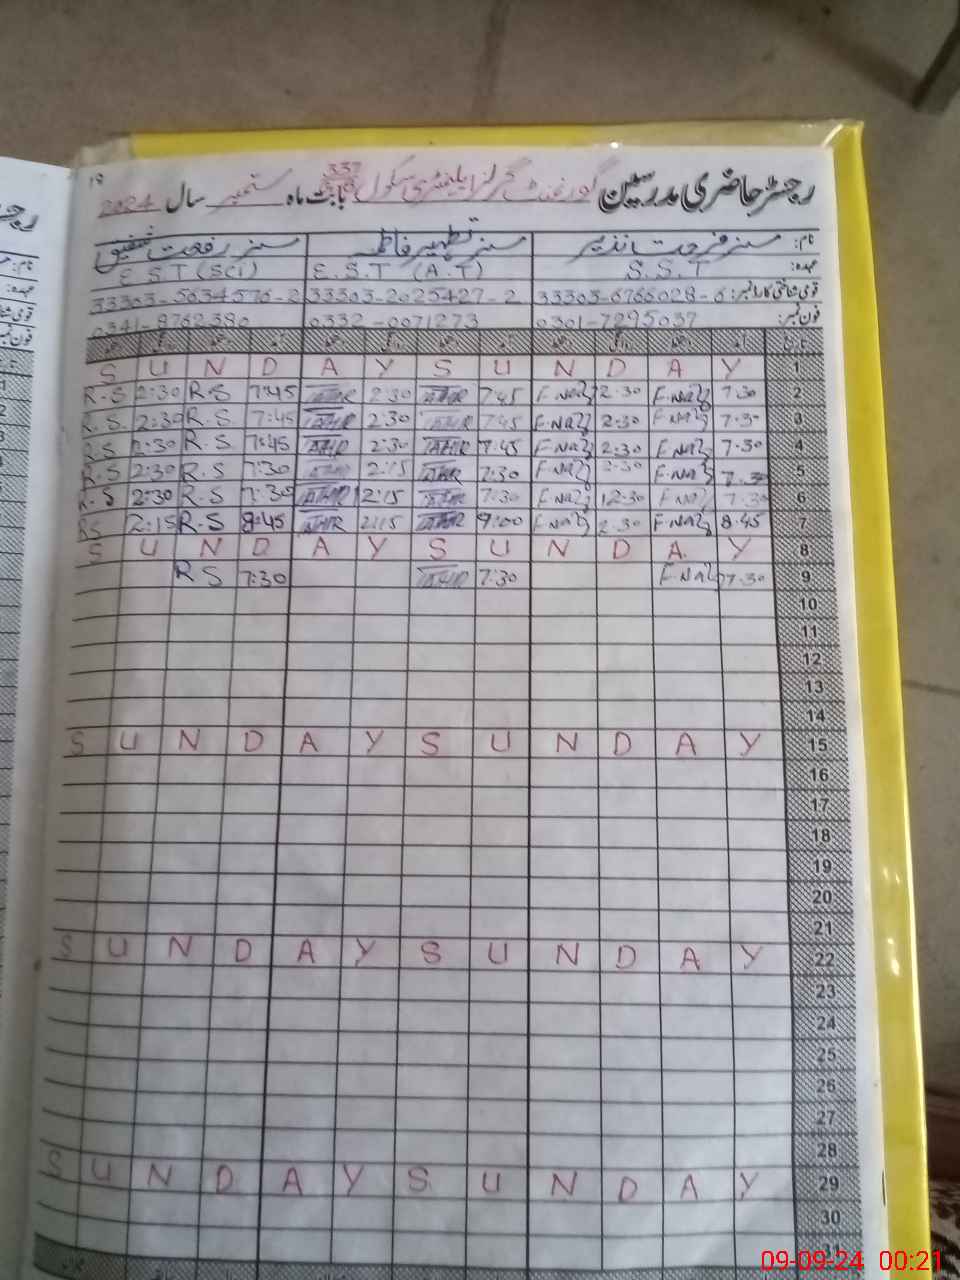 19
رجسٹر حاضری مدرسین گورنمنٹ گرلز ایلیمنٹری سکول 337 بابت ماہ ستمبر سال 2024
نام: مسز فرحت نذیر مسز تطہیر فاطمہ مسز رفعت شفیق
عہدہ: S.S.T E.S.T (A.T) E.S.T (SCI)
قومی شناختی کارڈ نمبر: 33303-6766028-6 33303-2025427-2 33303-5634576-2
فون نمبر: 0301-7295037 0332-0071273 0341-8762380
S U N D A Y S U N D A Y 1
R.S 2:30 R.S 7:45 2:30 7:45 F.Naz 2:30 F.Naz 7:30 2
R.S. 2:30 R.S 7:45 2:30 7:45 F.Naz 2:30 F.Naz 7:30 3
R.S 2:30 R.S 7:45 2:30 7:45 F.Naz 2:30 F.Naz 7:30 4
R.S 2:30 R.S 7:30 2:15 7:30 F.Naz 2:30 F.Naz 7:30 5
R.S 2:30 R.S 7:30 2:15 7:30 F.Naz 12:30 F.Naz 7:30 6
RS 2:15 R.S 8:45 2:15 9:00 F.Naz 2:30 F.Naz 8:45 7
S U N D A Y S U N D A Y 8
R S 7:30 7:30 F.Naz 7:30 9
10
11
12
13
14
S U N D A Y S U N D A Y 15
16
17
18
19
20
21
S U N D A Y S U N D A Y 22
23
24
25
26
27
28
S U N D A Y S U N D A Y 29
30
31
09-09-24 00:21